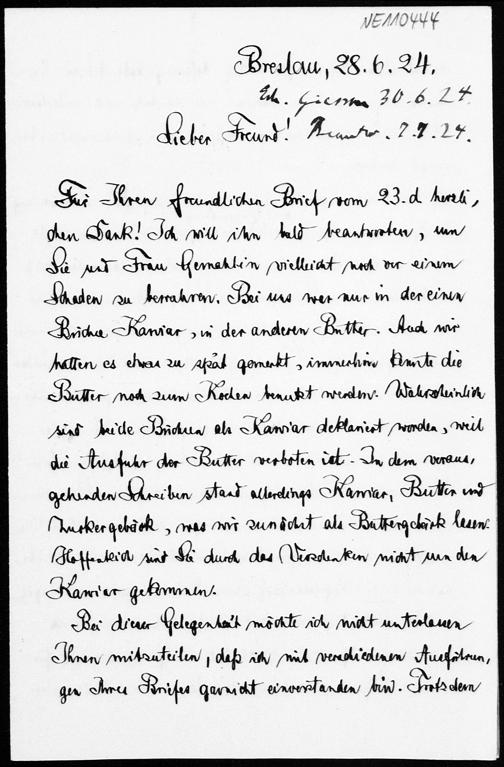 NE110444
Breslau, 28.6.24.
Erh. Giessen 30.6.24.
Beantw. 2.7.24.
Lieber Freund!
Für Ihren freundlichen Brief vom 23. d herzli,
chen Dank! Ich will ihn bald beantworten, um
Sie und Frau Gemahlin vielleicht noch vor einem
Schaden zu bewahren. Bei uns war nur in der einen
Büchse Kaviar, in der anderen Butter. Auch wir
hatten es etwas zu spät gemerkt, immerhin konnte die
Butter noch zum Kochen benutzt werden. Wahrscheinlich
sind beide Büchsen als Kaviar deklariert worden, weil
die Ausfuhr der Butter verboten ist. In dem voraus,
gehenden Schreiben stand allerdings Kaviar, Butter und
Zuckergebäck, was wir zunächst als Buttergebäck lasen.
Hoffentlich sind Sie durch das Verschenken nicht um den
Kaviar gekommen.
Bei dieser Gelegenheit möchte ich nicht unterlassen
Ihnen mitzuteilen, daß ich mit verschiedenen Ausführun,
gen Ihres Briefes garnicht einverstanden bin. Trotzdem